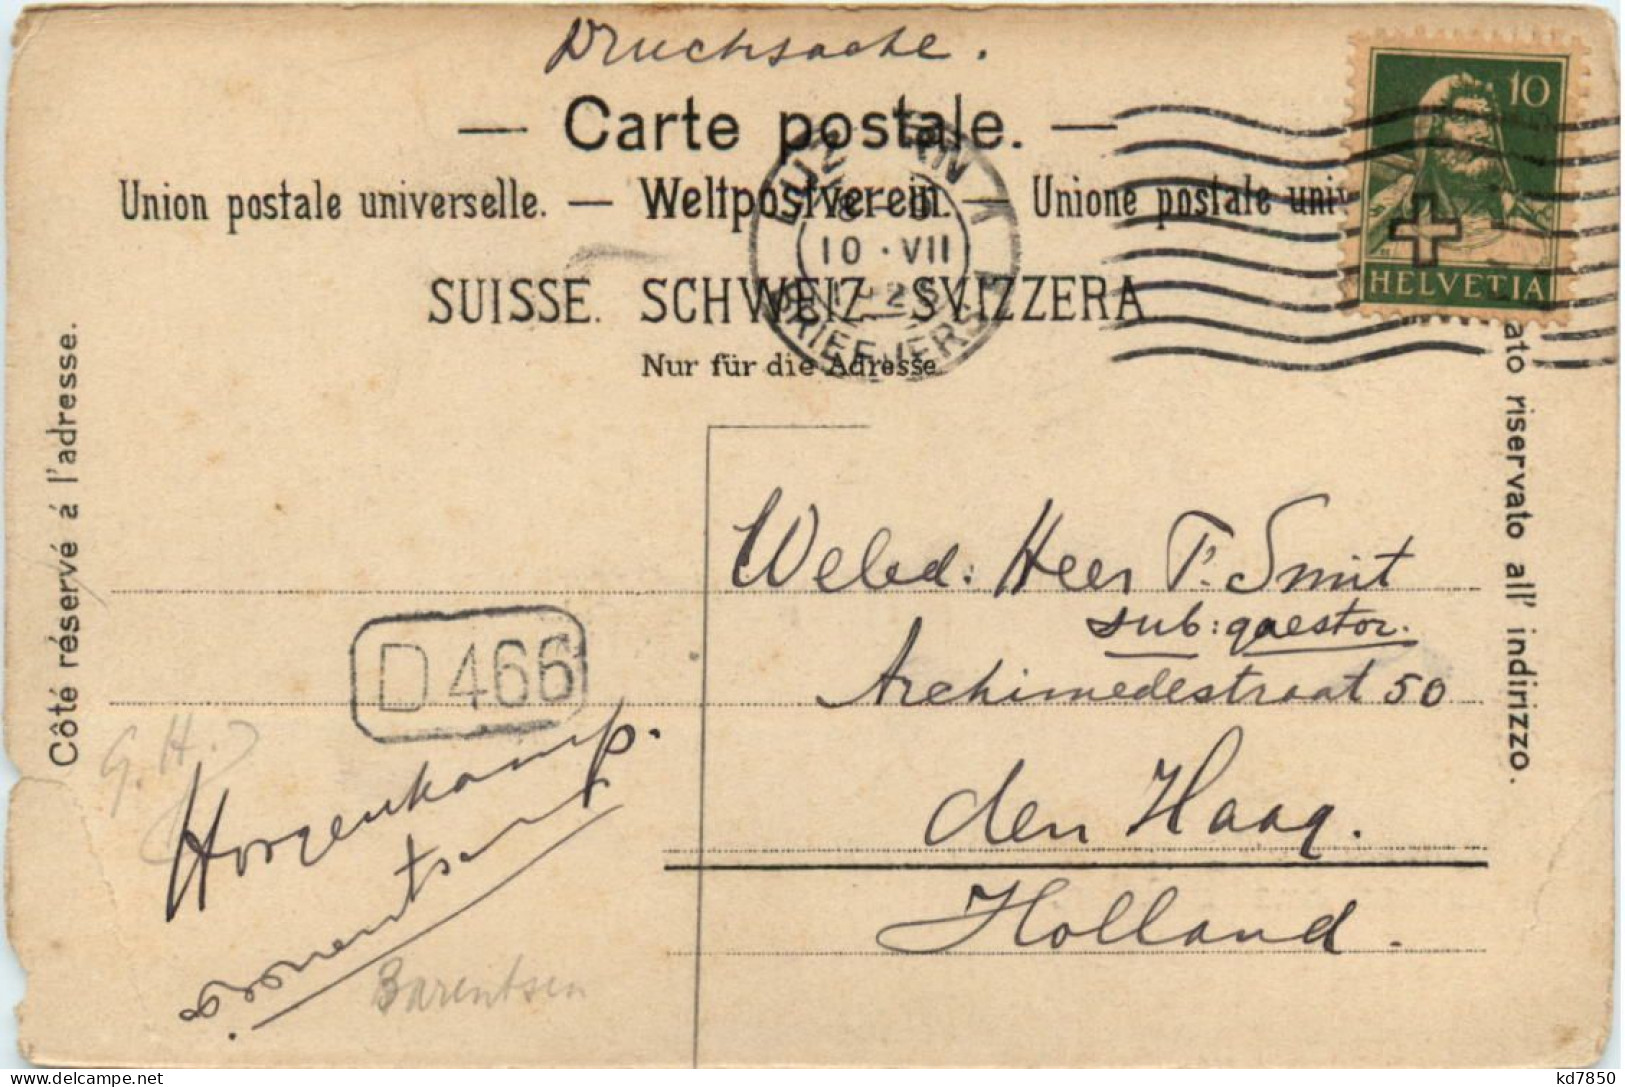 Drucksache.
— Carte postale. —
Union postale universelle. — Weltpostverein. — Unione postale uni
SUISSE. SCHWEIZ. SVIZZERA
Nur für die Adresse
10
HELVETIA
LUZERN 1
10 · VII
BRIEFVERS
Côté réservé á l'adresse.
ato riservato all' indirizzo.
Weled: Heer P. Smit
sub: qaestor.
Archimedestraat 50
den Haag.
Holland.
D 466
G. H.
Hoogenkamp.
Barentsen
kd7850